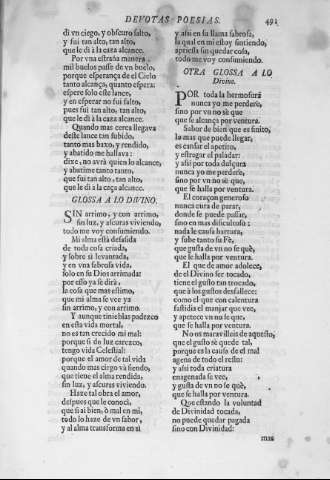 DEVOTAS POESIAS. 491
di vn ciego, y obscuro salto,
y fui tan alto, tan alto,
que le di à la caza alcance.
Por vna estraña manera
mil buelos passè de vn buelo,
porque esperança de el Cielo
tanto alcança, quanto espera:
espere solo este lance,
y en esperar no fui falto,
pues fui tan alto, tan alto,
que le di à la caza alcance.
Quando mas cerca llegava
deste lance tan subido,
tanto mas baxo, y rendido,
y abatido me hallava:
dixe, no avrà quien lo alcance,
y abatime tanto tanto,
que fui tan alto, tan alto,
que le di à la caça alcance.
GLOSSA A LO DIVINO.
SIN arrimo, y con arrimo,
sin luz, y ascuras viviendo,
todo me voy consumiendo.
Mi alma està desasida
de toda cosa criada,
y sobre si levantada,
y en vna sabrosa vida,
solo en su Dios arrimada:
por esso ya se dirà,
la cosa que mas estimo,
que mi alma se vee ya
sin arrimo, y con arrimo.
Y aunque tinieblas padezco
en esta vida mortal,
no es tan crecido mi mal:
porque si de luz carezco,
tengo vida Celestial:
porque el amor de tal vida
quando mas ciego và siendo,
que tiene el alma rendida,
sin luz, y ascuras viviendo.
Haze tal obra el amor,
despues que le conoci,
que si ai bien, ò mal en mi,
todo lo haze de vn sabor,
y al alma transforma en si
y assi en su llama sabrosa,
la qual en mi estoy sintiendo,
apriessa sin quedar cosa,
todo me voy consumiendo.
OTRA GLOSSA A LO
Divino.
POR toda la hermosura
nunca yo me perderè,
sino por vn no sè què
que se alcança por ventura.
Sabor de bien que es finito,
lo mas que puede llegar,
es cansar el apetito,
y estragar el paladar:
y assi por toda dulçura
nunca yo me perderè,
sino por vn no sè què,
que se halla por ventura.
El coraçon generoso
nunca cura de parar,
donde se puede passar,
sino en mas dificultoso:
nada le causa hartura,
y sube tanto su Fè,
que gusta de vn no se què,
que se halla por ventura.
El que de amor adolece,
de el Divino ser tocado,
tiene el gusto tan trocado,
que à los gustos desfallece:
como el que con calentura
fastidia el manjar que vee,
y apetece vn no se què,
que se halla por ventura.
No os maravilleis de aquesto,
que el gusto se quede tal,
porque es la causa de el mal
ageno de todo el resto:
y assi toda criatura
enagenada se vee,
y gusta de vn no se què,
que se halla por ventura.
Que estando la voluntad
de Divinidad tocada,
no puede quedar pagada
sino con Divinidad:
mas